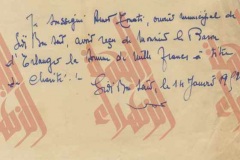 Je soussigné, ouvrier municipal de
Sidi Bou Saïd, avoir reçu de Monsieur le Baron
d'Erlanger la somme de mille francs à titre
de charité.
Sidi Bou Saïd, le 14 Janvier